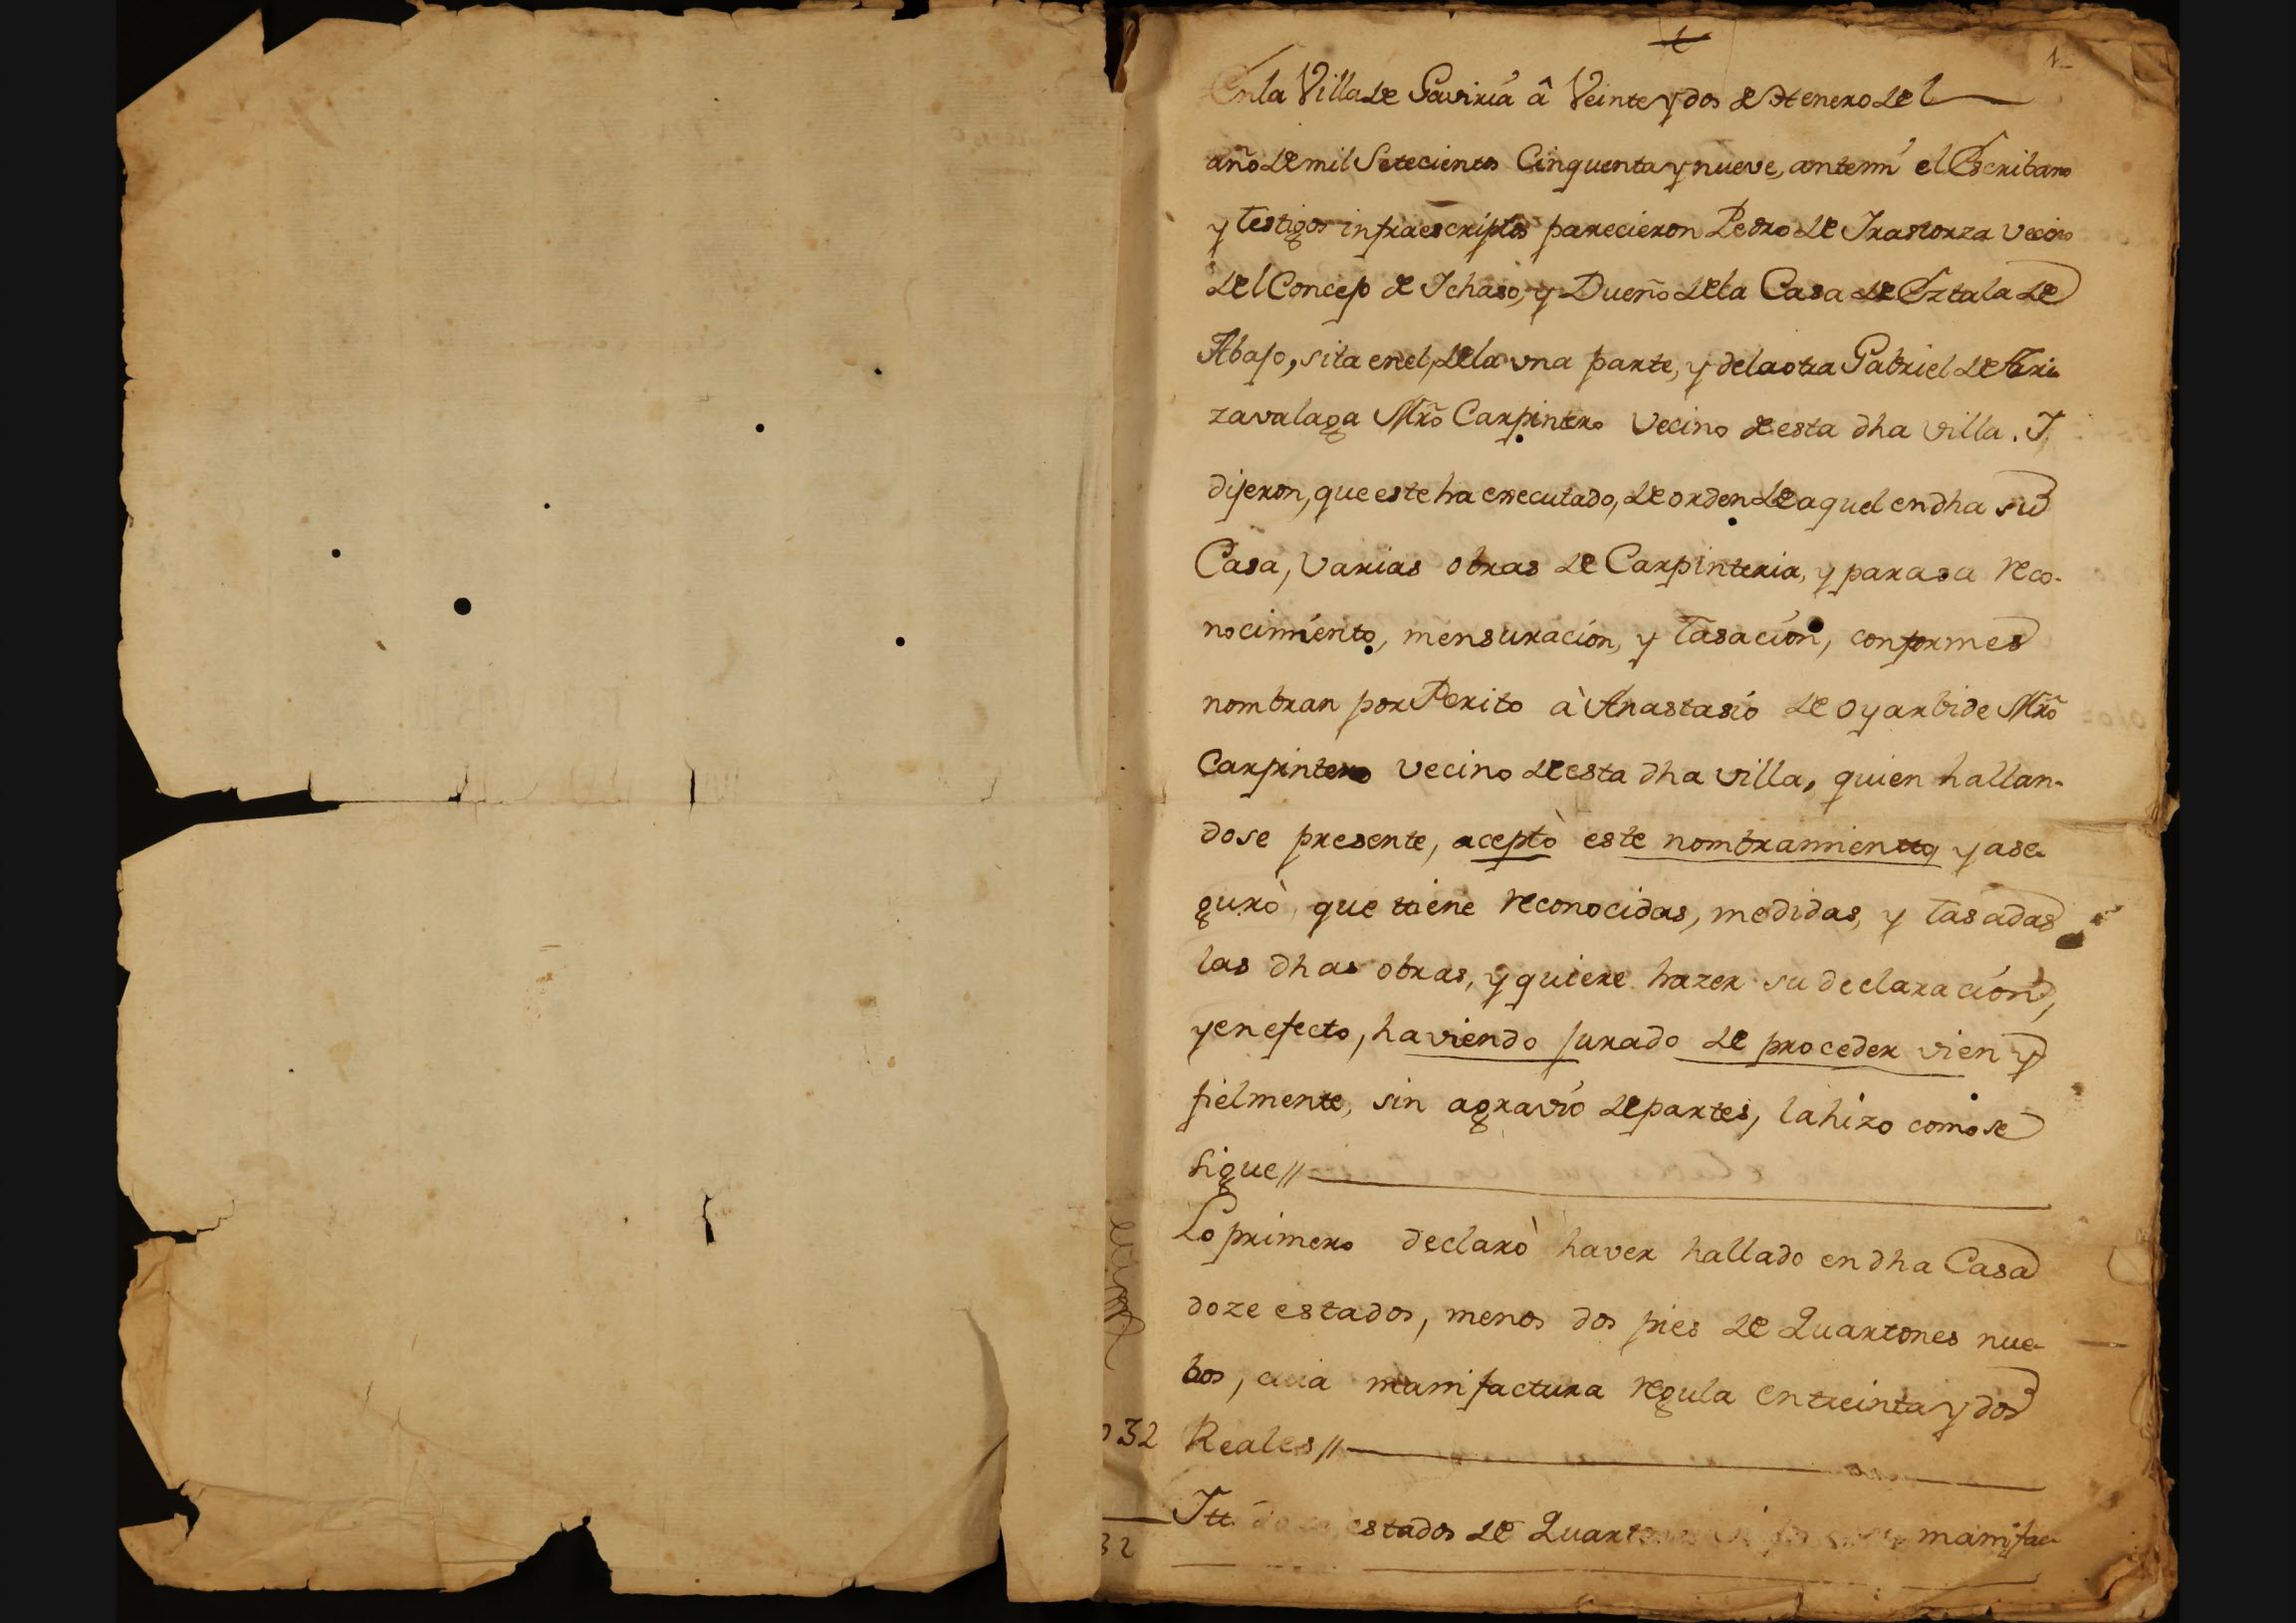 1
En la Villa de Gaviria â Veinte y dos de Henero del
año de mil Setecientos Cinquenta y nueve, antemi el Escribano
y testigos infraescriptos parecieron Pedro de Irastorza vecino
del Concejo de Ichaso, y Dueño de la Casa de Eztala de
Abajo, sita en el, de la una parte, y de la otra Gabriel de Ari
zavalaga Mrõ Carpintero Vecino de esta dha villa. I
dijeron, que este ha executado, de orden de aquel en dha su
Casa, Varias obras de Carpinteria, y para su reco-
nocimiento, mensuracion, y tasacion, conformes
nombran por Perito à Anastasio de Oyarbide Mrõ
Carpintero vecino de esta dha villa, quien hallan-
dose presente, aceptò este nombramiento, y ase-
gurò, que tiene reconocidas, medidas, y tasadas
las dhas obras, y quiere hazer su declaracion,
y en efecto, haviendo jurado de proceder vien y
fielmente, sin agravio de partes, la hizo como se
sigue //
Lo primero declarò haver hallado en dha Casa
doze estados, menos dos pies de Quartones nue-
bos, cuia manifactura regula en treinta y dos
032 Reales //
Itt. estados de manifac-
32